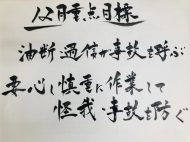 12月重点目標
油断過信が事故を呼ぶ
要心し慎重に作業して
怪我・事故を防ぐ